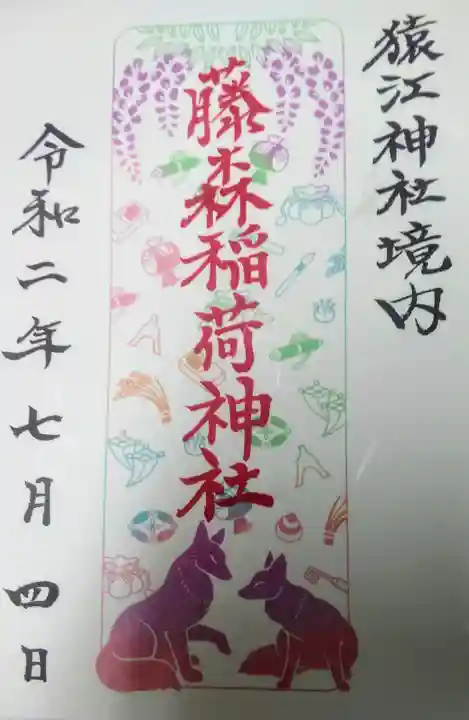 猿江神社境内
藤森稲荷神社
令和二年七月四日